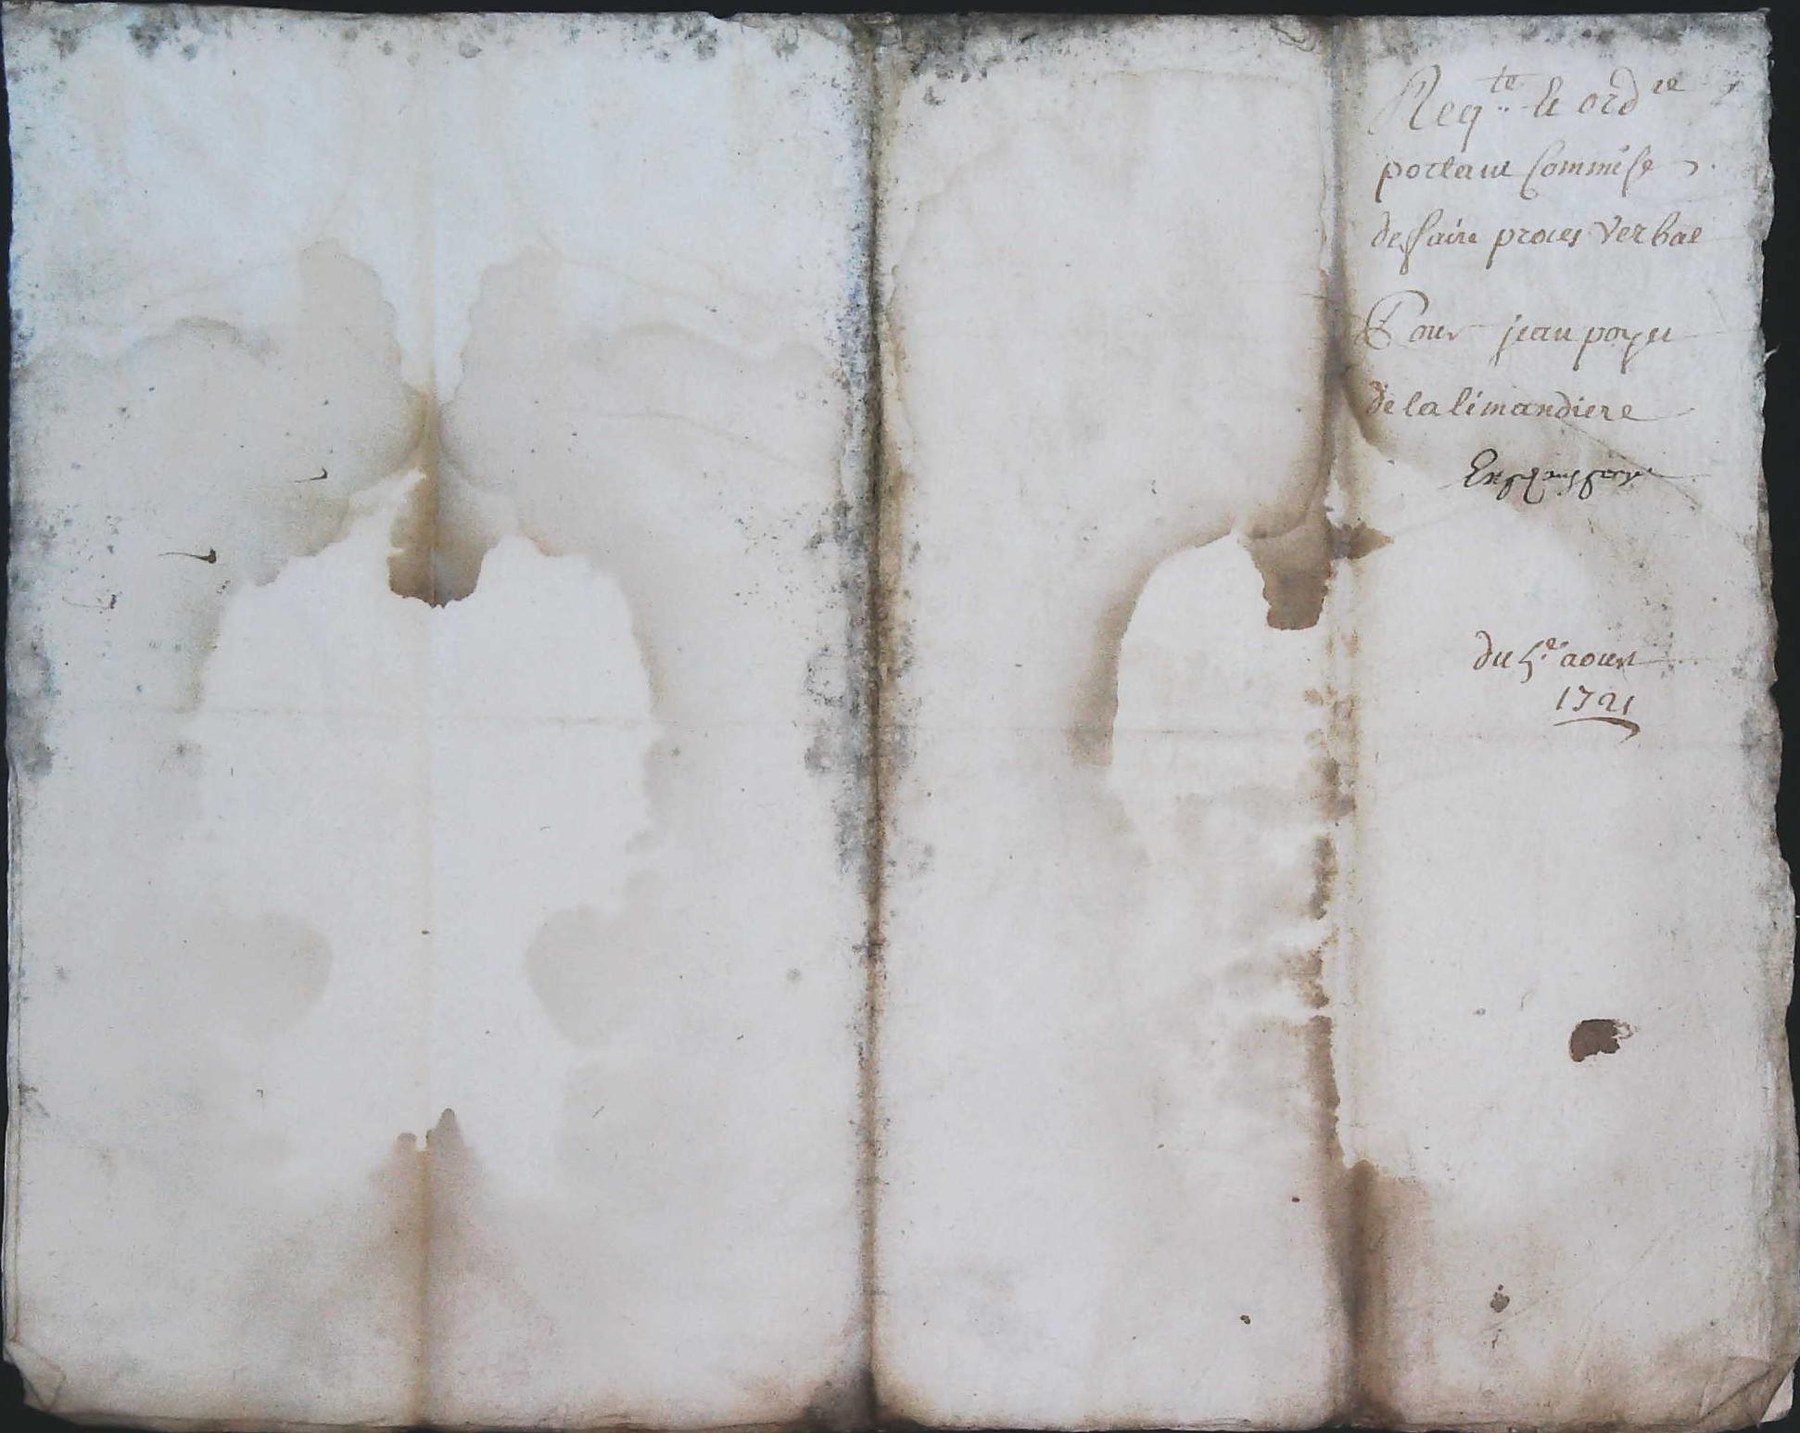 Reqte & ordce
portant Commise
de faire proces Verbal
Pour jean poyet
de la limandiere
du 5e aoust
1721